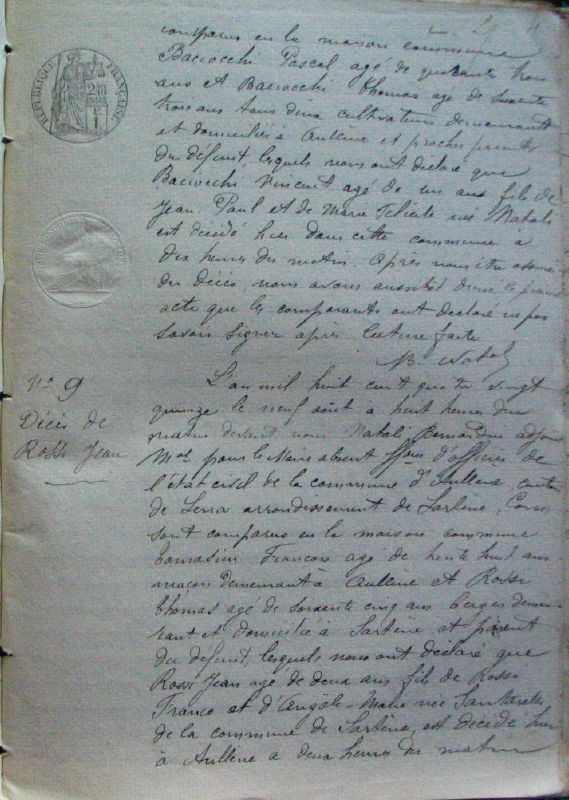 comparus en la maison commune
Baciocchi Pascal agé de quarante trois
ans et Baciocchi Thomas agé de soixante
trois ans tous deux cultivateurs demeurant
et domiciliés à Aullène et proches parents
du défunt, lesquels nous ont déclaré que
Baciocchi Vincent agé de un ans fils de
Jean Paul et de Marie Félicité née Natali
est décédé hier dans cette commune à
dix heures du matin. Après nous être assuré
du décès, nous avons aussitôt dressé le présent
acte que les comparants ont déclaré ne pas
savoir signer après lecture faite
B. Natali
REPUBLIQUE FRANÇAISE
No 9
Décès de
Rossi Jean
L'an mil huit cent quatre vingt
quinze le neuf août à huit heures du
matin devant nous Natali Bernardin adjoint
Mal pour le Maire absent ffons d'officier de
l'état civil de la commune d'Aullène canton
de Serra arrondissement de Sartène, Corse
sont comparus en la maison commune
Tomasini François agé de trente huit ans
maçon demeurant à Aullène et Rossi
Thomas agé de soixante cinq ans berger demeu-
rant et domicilié à Sartène et parent
du défunt, lesquels nous ont déclaré que
Rossi Jean agé de deux ans fils de Rossi
Franco et d'Angèle-Marie née
de la commune de Sartène, est décédé hier
à Aullène à deux heures du matin